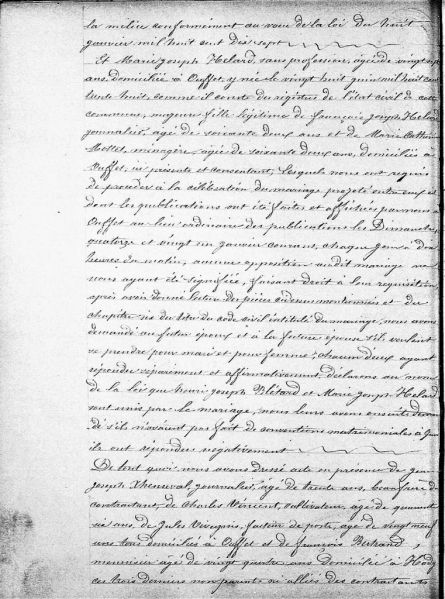 la milice conformément au vœu de la loi du huit
janvier mil huit cent dix sept
Et Marie Joseph Helard, sans profession, âgée de vingt sept
ans, domiciliée à Ouffet, y née le vingt huit juin mil huit cent
huit, comme il conste du registre de l'état civil de cette
commune, majeure fille légitime de françois Joseph Helard
journalier, âgé de soixante deux ans et de Marie Catherine
Mottet, ménagère, âgée de soixante deux ans, domiciliés à
Ouffet, ici présents et consentant, Lesquels nous ont requis
de procéder à la célébration du mariage projeté entre eux et
dont les publications ont été faites et affichées par nous à
Ouffet au lieu ordinaire des publications les Dimanches
quatorze et vingt un janvier courant, chaque jour à dix
heures du matin, aucune opposition audit mariage ne
nous ayant été signifiée, faisant droit à leur réquisition,
après avoir donné lecture des pièces cidessus mentionnées et du
chapitre six du titre du code civil intitulé du mariage, nous avons
demandé au futur époux et à la future épouse s'ils veulent
se prendre pour mari et pour femme, chacun deux ayant
répondu séparément et affirmativement, déclarons au nom
de la loi que henri Joseph Blétard et Marie Joseph Helard
sont unis par le mariage, nous leurs avons ensuite deman
dé s'ils n'avaient pas fait de conventions matrimoniales à quoi
ils ont répondu négativement
De tout quoi nous avons dressé acte en présence de
Joseph Xhenseval, journalier, âgé de trente ans, beau frère du
contractant, de Charles Vincent, cultivateur, âgé de quarante
six ans, de Jules facteur de poste, âgé de vingt neuf
ans tous domiciliés à Ouffet et de françois Bertrand,
menuisier âgé de vingt quatre ans domicilié à Hody
ces trois derniers non parents ni alliés des contractants